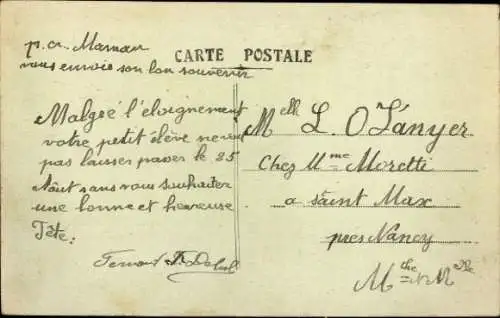 p.cr. Maman
vous envoie son bon souvenir
CARTE POSTALE
Malgré l'éloignement
votre petit élève ne veut
pas laisser passer le 25
Août sans vous souhaiter
une bonne et heureuse
Fête:
Fernand
Melle L. O Lanyer
Chez Mme Moretti
a Saint Max
près Nancy
Mthe